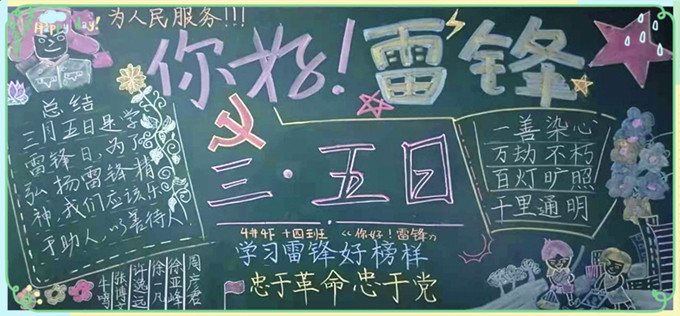 Happy day!
为人民服务!!!
你好!雷锋
总结
三月五日是学
雷锋日,为了
弘扬雷锋精
神,我们应该乐
于助人,以善待人
三·五日
一善染心
万劫不朽
百灯旷照
千里通明
十四班 《你好!雷锋》
学习雷锋好榜样
忠于革命忠于党
周彦君
徐亚峰
徐一凡
许逸远
张博文
牛鸣